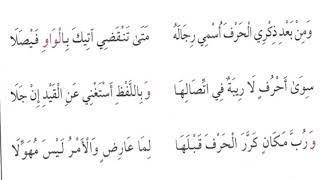 وَمِنْ بَعْدِ ذِكْرِي الْحَرْفَ أُسْمِي رِجَالَهُ مَتَى تَنْقَضِي آتِيكَ بِالْوَاوِ فَيْصَلَا
سِوَى أَحْرُفٍ لَا رِيبَةٌ فِي اتِّصَالِهَا وَبِاللَّفْظِ أَسْتَغْنِي عَنِ الْقَيْدِ إِنْ جَلَا
وَرُبَّ مَكَانٍ كَرَّرَ الْحَرْفَ قَبْلَهَا لِمَا عَارِضٍ وَالْأَمْرُ لَيْسَ مُهَوِّلَا